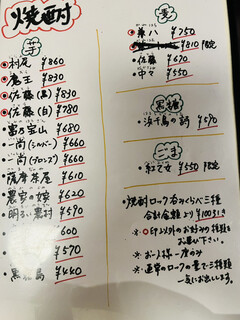 焼酎
芋
村尾 ¥860
魔王 ¥830
佐藤(黒) ¥830
佐藤(白) ¥780
富乃宝山 ¥680
一尚(シルバー) ¥660
一尚(ブロンズ) ¥660
薩摩茶屋 ¥610
農家の嫁 ¥620
明るい農村 ¥590
¥600
¥570
黒 島 ¥440
麦
兼八 ¥750
¥810 限定
佐藤 ¥670
中々 ¥550
黒糖
浜千鳥の詩 ¥590
ごま
紅乙女 ¥550 限定
・焼酎ロック呑みくらべ三種
合計金額より ¥100引き
※○印以外のお好みの種類を
お選び下さい。
※お一人様一度のみ
※通常のロックの量で三種類
一気にお出しします。